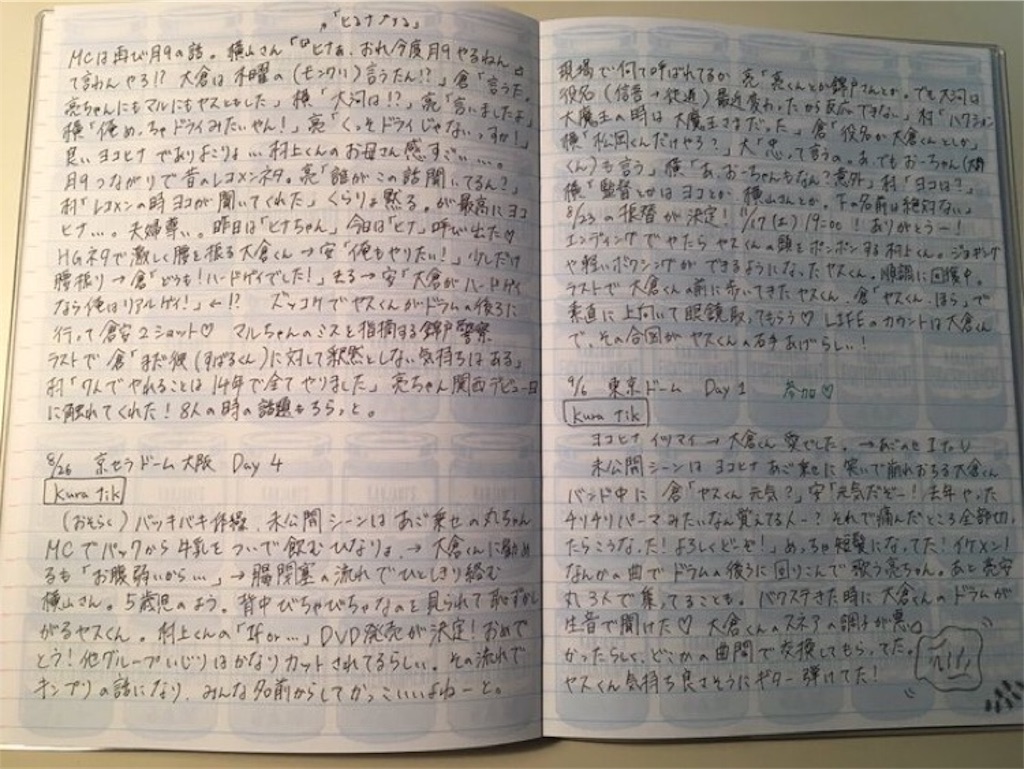 MCは再び月9の話。横山さん「『ヒナぁ、おれ今度月9やるねん』
て言わんやろ!? 大倉は木曜の(モンクリ)言うたん!?」倉「言うた。
亮ちゃんにもマルにもヤスともした」横「大河は!?」亮「言いましたよ」
横「俺めっちゃドライみたいやん!」亮「くっそドライじゃないっすか!」
良いヨコヒナでありよこりょ…村上くんのお母さん感すごい…。
月9つながりで昔のレコメンネタ。亮「誰がこの話聞いてるん?」
村「レコメンの時ヨコが聞いてくれた」くらりょ黙る。が最高にヨコ
ヒナ…。夫婦尊い。昨日は「ヒナちゃん」今日は「ヒナ」呼び出た♡
HGネタで激しく腰を振る大倉くん→安「俺もやりたい!」少しだけ
腰振り→倉「どうも!ハードゲイでした!」去る→安「大倉がハードゲイ
なら俺はリアルゲイ!」←!? ズッコケでヤスくんがドラムの後ろに
行って倉安2ショット♡ マルちゃんのミスを指摘する錦戸警察
ラストで倉「まだ彼(すばるくん)に対して釈然としない気持ちはある」
村「7人でやれることは14年で全てやりました」亮ちゃん関西デビュー日
に触れてくれた!8人の時の話題もちらっと。
8/26 京セラドーム大阪 Day 4
Kura tik
(おそらく)バッキバキ体操、未公開シーンはあご乗せの丸ちゃん
MCでパックから牛乳をついで飲むひなりょ、→大倉くんに勧め
るも「お腹弱いから…」→腸閉塞の流れでひとしきり絡む
横山さん。5歳児のよう。背中びちゃびちゃなのを見られて恥ずかし
がるヤスくん。村上くんの「If or…」DVD発売が決定!おめで
とう!他グループいじりはかなりカットされてるらしい。その流れで
キンプリの話になり、みんな名前からしてかっこいいよねーと。
現場で何て呼ばれてるか 亮「亮くんとか錦戸さんとか。でも大河は
役名(信吾→従道)最近変わったから反応できない」村「ハクション
大魔王の時は大魔王さまだった」倉「役名か大倉くんとか」
横「松岡くんだけやろ?」大「忠って言うの。あ、でもおーちゃん
くん)も言う」横「あ、おーちゃんもなん?意外」村「ヨコは?」
横「監督とかはヨコとか、横山さんとか。下の名前は絶対ない」
8/23の振替が決定!11/17(土)19:00!!ありがとうー!
エンディングでやたらヤスくんの頭をポンポンする村上くん。ジョギング
や軽いボクシングができるようになったヤスくん。順調に回復中。
ラストで大倉くんの前に歩いてきたヤスくん、倉「ヤスくん、ほら」で
素直に上向いて眼鏡取ってもらう♡ LIFEのカウントは大倉くん
で、その合図がヤスくんの右手あげらしい!
9/6 東京ドーム Day 1 参加♡
Kura tik
ヨコヒナイツマイ→大倉くん愛でした。→あごのせ I to U
未公開シーンはヨコヒナあご乗せに笑いで崩れおちる大倉くん
バンド中に 倉「ヤスくん元気?」安「元気だぞー!去年やった
チリチリパーマみたいなん覚えてる人ー?それで痛んだところ全部切っ
たらこうなった!よろしくどーぞ!」めっちゃ短髪になってた!イケメン!
なんかの曲でドラムの後ろに回りこんで歌う亮ちゃん。あと亮安
丸3人で集ってることも。バクステきた時に大倉くんのドラムが
生音で聞けた♡ 大倉くんのスネアの調子が悪
かったらしく、どこかの曲間で交換してもらってた。
ヤスくん気持ち良さそうにギター弾けてた!